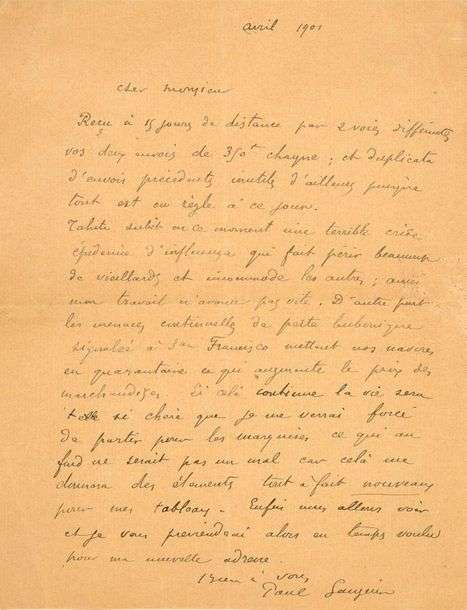 avril 1901
cher monsieur
Reçu à 15 jours de distance par 2 voies différentes
vos deux envois de 350f chaque ; et duplicata
d'envois précédents inutils d'ailleurs puisque
tout est en règle à ce jour.
Tahiti subit en ce moment une terrible crise
épidémie d'influenza qui fait périr beaucoup
de vieillards et incommode les autres ; aussi
mon travail n'avance pas vite. D'autre part
les menaces continuelles de peste bubonique
signalée à San Francisco mettent nos navires
en quarantaine ce qui augmente le prix des
marchandises. Si celà continue la vie sera
si chère que je me verrai forcé
de partir pour les marquises ce qui au
fond ne serait pas un mal car celà me
donnera des éléments tout à fait nouveaux
pour mes tableaux. Enfin nous allons voir
et je vous previendrai alors en temps voulu
pour ma nouvelle adresse.
Bien à vous
Paul Gauguin